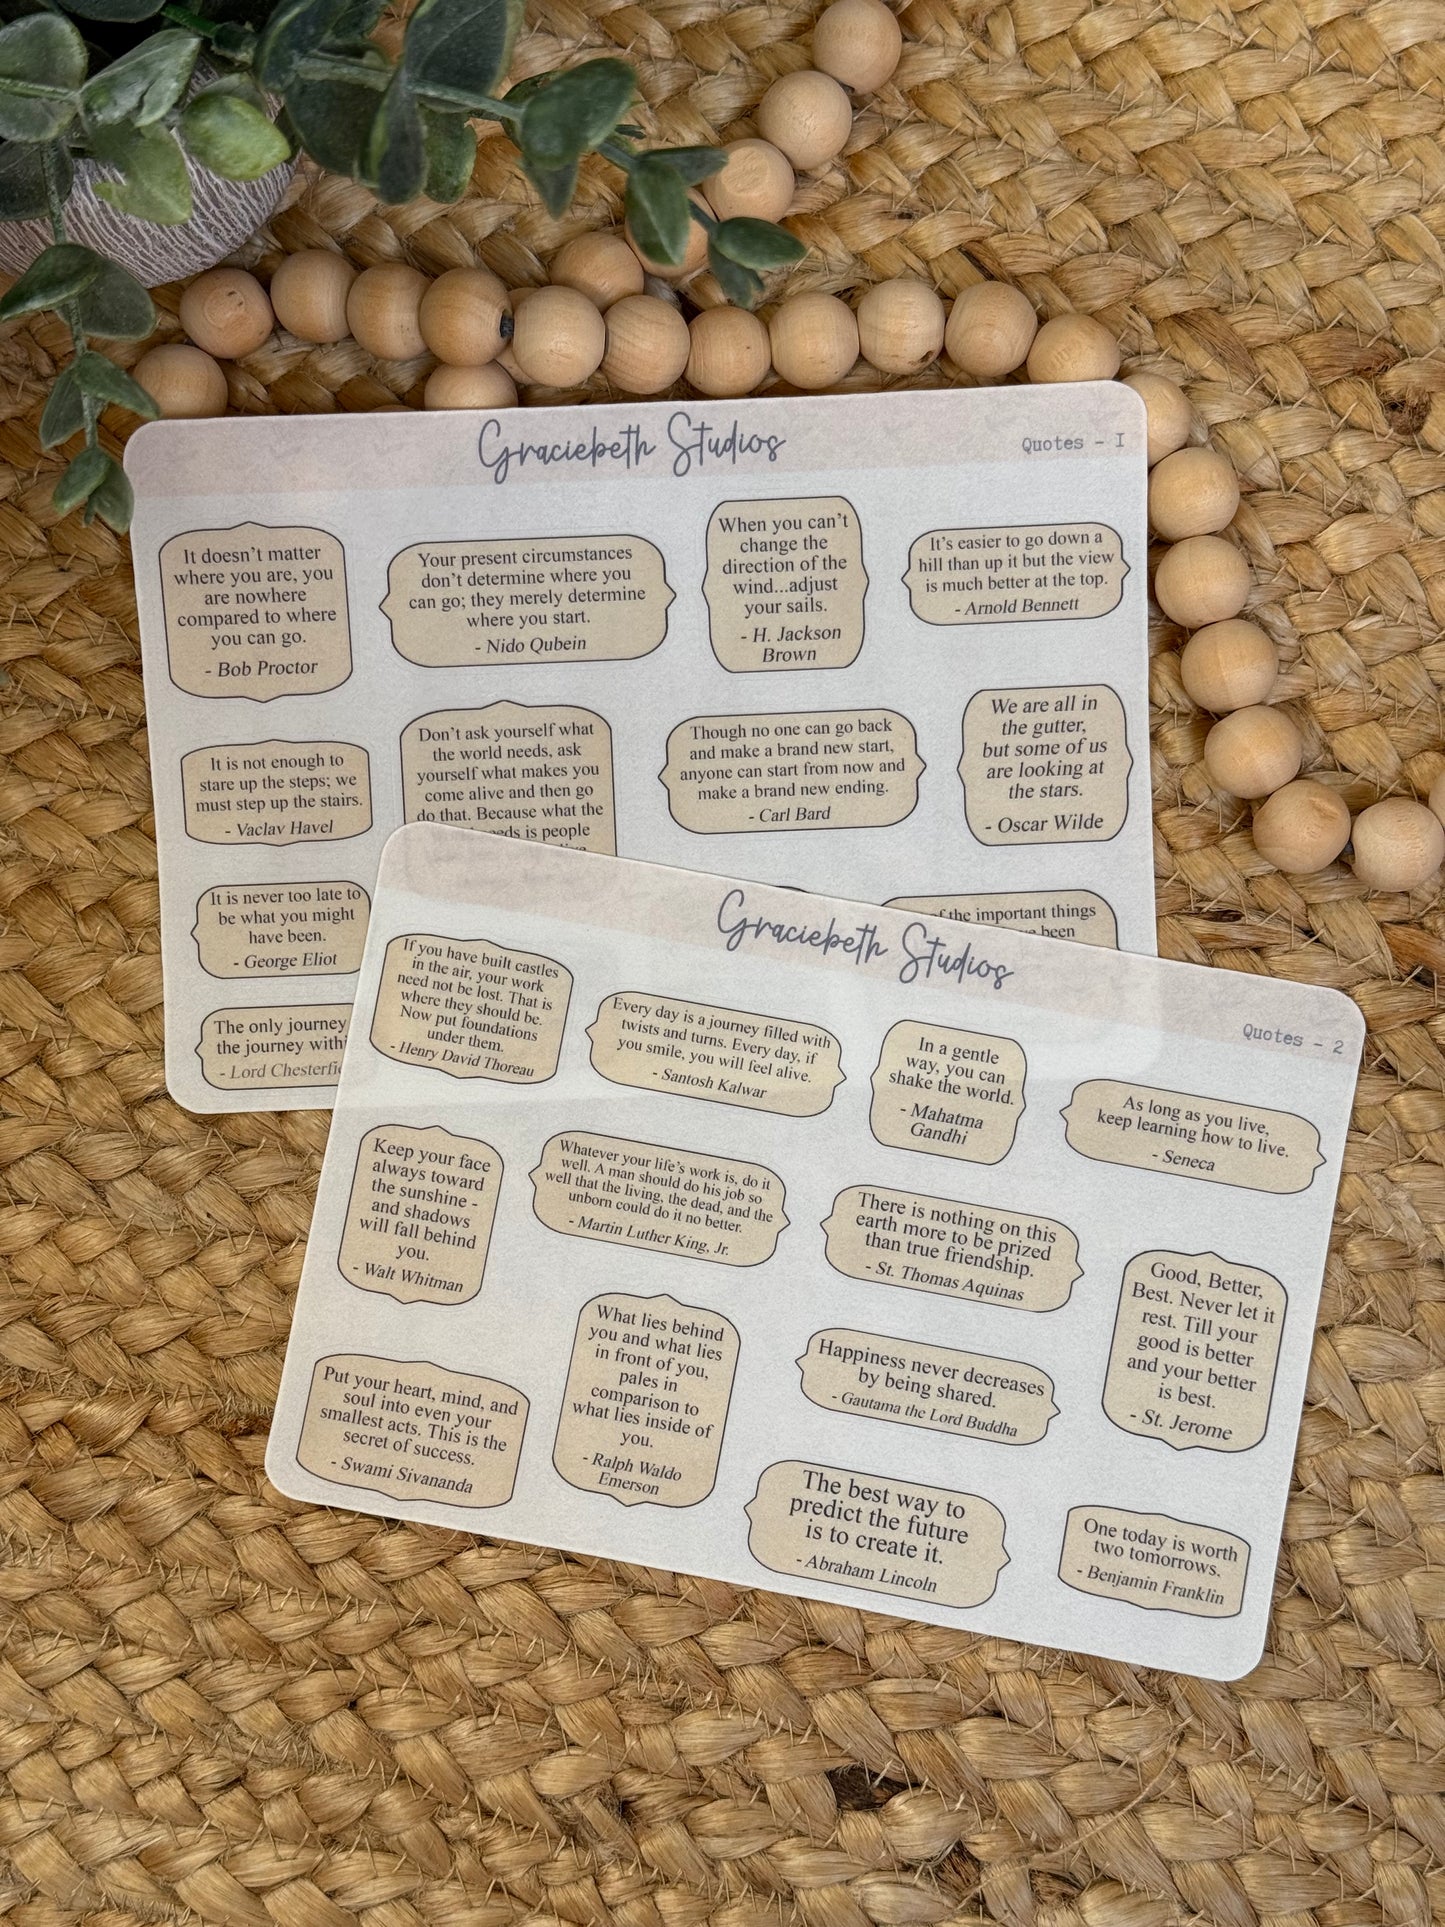 Graciebeth Studios
Quotes - 1
It doesn't matter
where you are, you
are nowhere
compared to where
you can go.
- Bob Proctor
Your present circumstances
don't determine where you
can go; they merely determine
where you start.
- Nido Qubein
When you can't
change the
direction of the
wind...adjust
your sails.
- H. Jackson
Brown
It's easier to go down a
hill than up it but the view
is much better at the top.
- Arnold Bennett
It is not enough to
stare up the steps; we
must step up the stairs.
- Vaclav Havel
Don't ask yourself what
the world needs, ask
yourself what makes you
come alive and then go
do that. Because what the
is people
Though no one can go back
and make a brand new start,
anyone can start from now and
make a brand new ending.
- Carl Bard
We are all in
the gutter,
but some of us
are looking at
the stars.
- Oscar Wilde
It is never too late to
be what you might
have been.
- George Eliot
the important things
been
The only journey
the journey
- Lord
Graciebeth Studios
Quotes - 2
If you have built castles
in the air, your work
need not be lost. That is
where they should be.
Now put foundations
under them.
- Henry David Thoreau
Every day is a journey filled with
twists and turns. Every day, if
you smile, you will feel alive.
- Santosh Kalwar
In a gentle
way, you can
shake the world.
- Mahatma
Gandhi
As long as you live,
keep learning how to live.
- Seneca
Keep your face
always toward
the sunshine -
and shadows
will fall behind
you.
- Walt Whitman
Whatever your life's work is, do it
well. A man should do his job so
well that the living, the dead, and the
unborn could do it no better.
- Martin Luther King, Jr.
There is nothing on this
earth more to be prized
than true friendship.
- St. Thomas Aquinas
Good, Better,
Best. Never let it
rest. Till your
good is better
and your better
is best.
- St. Jerome
Put your heart, mind, and
soul into even your
smallest acts. This is the
secret of success.
- Swami Sivananda
What lies behind
you and what lies
in front of you,
pales in
comparison to
what lies inside of
you.
- Ralph Waldo
Emerson
Happiness never decreases
by being shared.
- Gautama the Lord Buddha
The best way to
predict the future
is to create it.
- Abraham Lincoln
One today is worth
two tomorrows.
- Benjamin Franklin